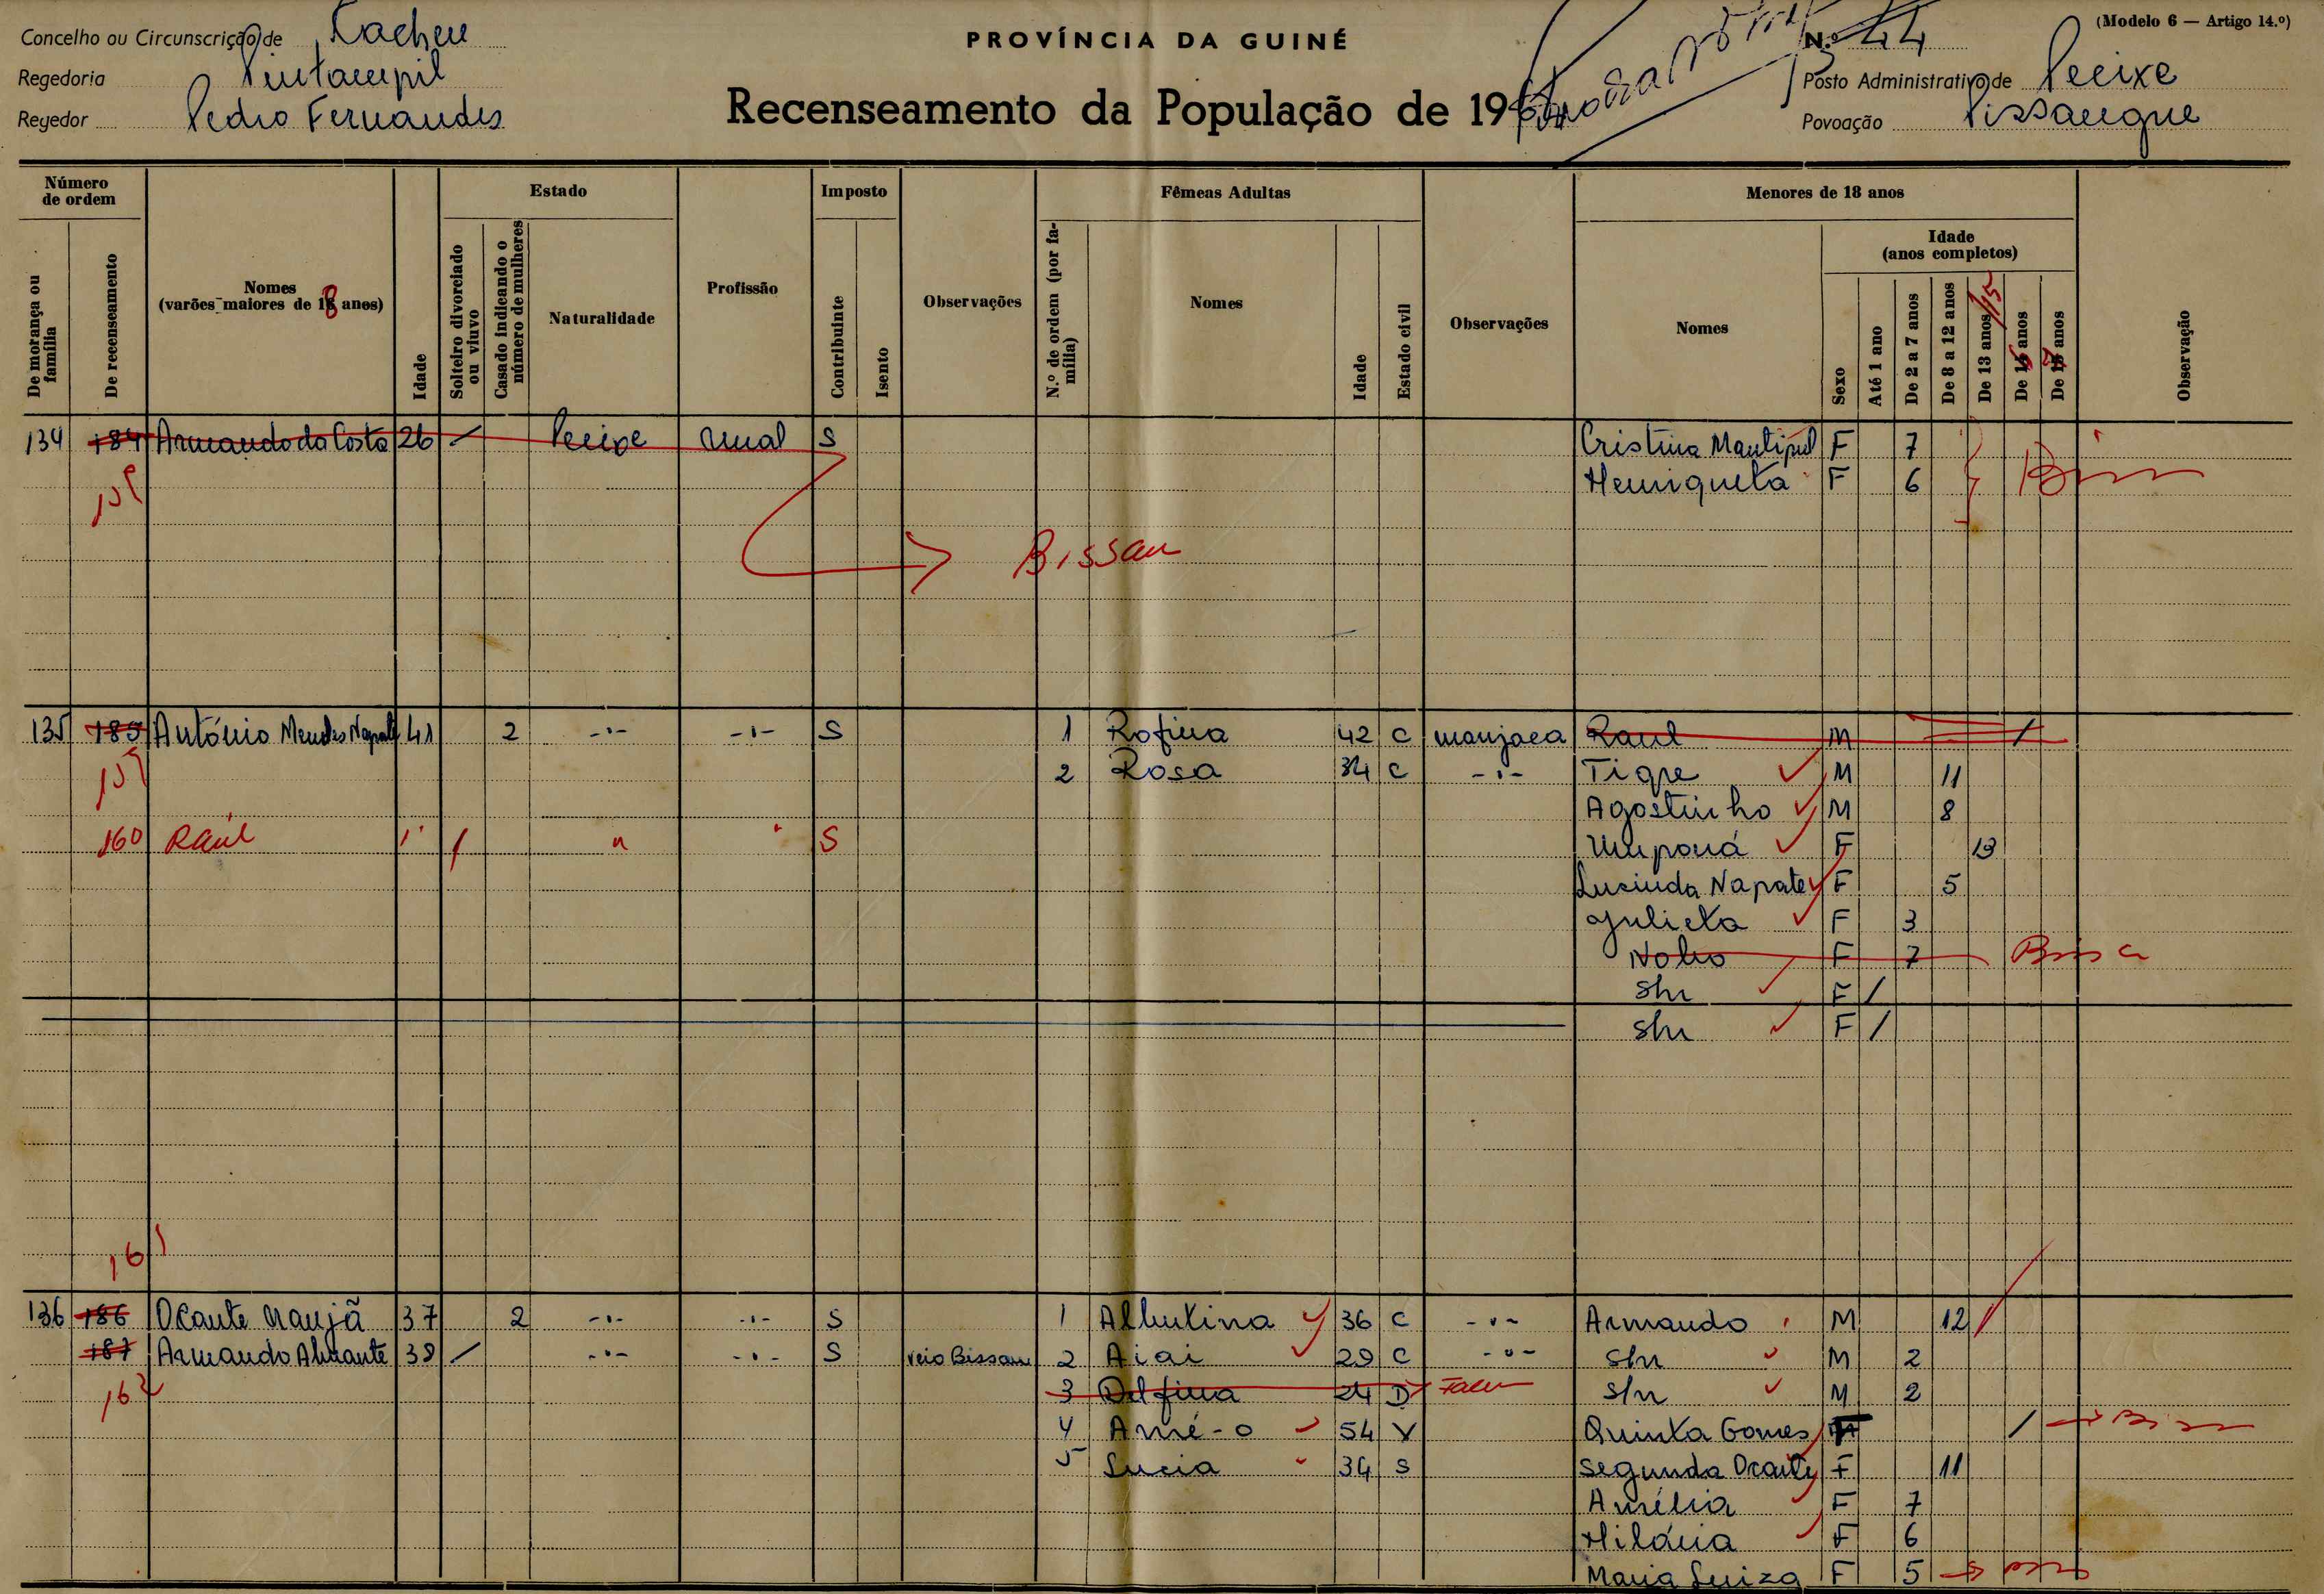 (Modelo 6 — Artigo 14.º)
Concelho ou Circunscrição de Cacheu
PROVÍNCIA DA GUINÉ
N.º 44
Regedoria Pintampil
Posto Administrativo de Pecixe
Regedor Pedro Fernandes
Recenseamento da População de 196
Povoação Pissangue
Número de ordem
Estado
Imposto
Fêmeas Adultas
Menores de 18 anos
De morança ou família
De recenseamento
Nomes (varões maiores de 18 anos)
Idade
Solteiro divorciado ou viuvo
Casado indicando o número de mulheres
Naturalidade
Profissão
Contribuinte
Isento
Observações
N.º de ordem (por família)
Nomes
Idade
Estado civil
Observações
Nomes
Idade (anos completos)
Sexo
Até 1 ano
De 2 a 7 anos
De 8 a 12 anos
De 13 anos 15
De 16 anos
De 17 anos
Observação
134 184 Armando da Costa 26 / Pecixe rural S Cristina Mantipil F 7
Henriqueta F 6
Bissau
135 185 António Mendes Napat 41 2 -"- -"- S 1 Rofina 42 C manjaca Raul M /
159 2 Rosa 34 C -"- Tigre M 11
Agostinho M 8
160 Raúl / " " S F 13
Lucinda Napate F 5
Julieta F 3
F 7
shr F /
shr F /
161
136 186 Ocante Naujã 37 2 -"- -"- S 1 Albertina 36 C -"- Armando M 12
187 Armando 38 / -"- -"- S veio Bissau 2 Aiai 29 C -"- shr M 2
162 3 Delfina 24 D shr M 2
4 Amé-o 54 V Quinta Gomes F /
5 Lucia 34 S Segunda Ocante F 11
Amélia F 7
Hilária F 6
Maria Luiza F 5